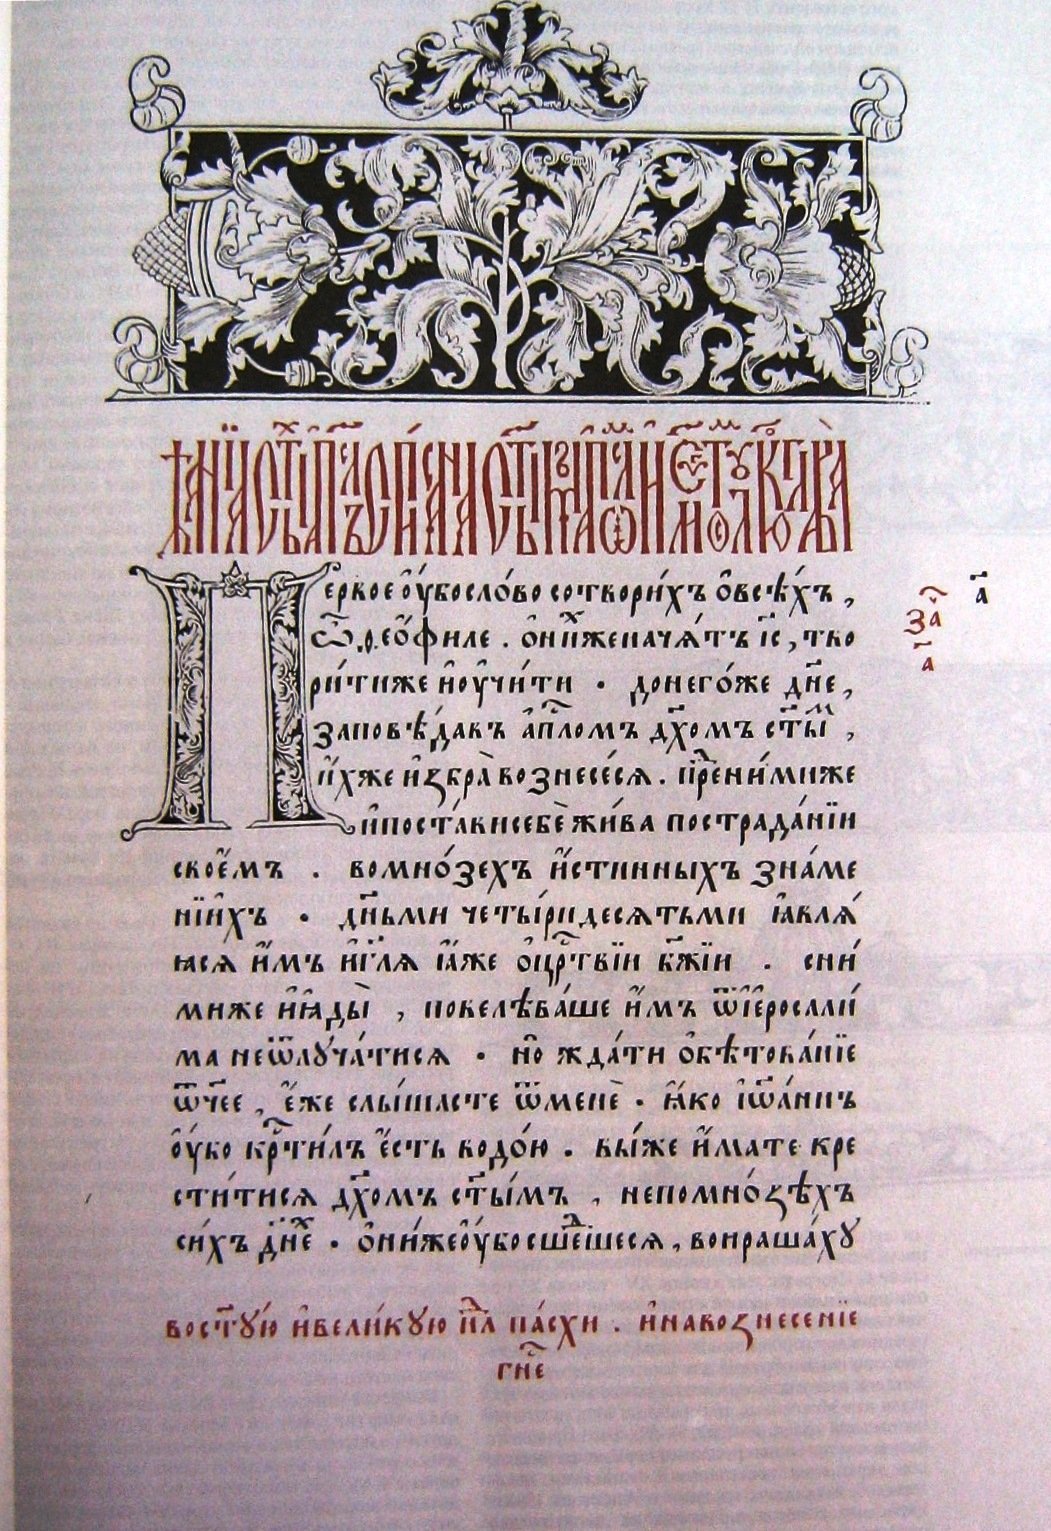 еркое ѹ҆́бо сло́во сотвори́хъ ѻ҆ всѣ́хъ ,
ѽ , ѳео́филе . ѻ҆ ни́хже нача́тъ і҆с҃ , тво
ри́ти же и҆ ѹ҆чи́ти . до него́же дн҃е ,
заповѣ́давъ а҆пⷭ҇ломъ дх҃омъ ст҃ы́м ,
и҆́хже и҆збра̀ вознесе́сѧ . преⷣ ни́миже
и҆ поста́ви себѐ жи́ва по страда́нїи
свое́мъ . во мно́зехъ и҆́стинныхъ зна́ме
нїи҆хъ . дн҃ьми четы́ридесѧтьми ꙗ҆влѧ́
ꙗсѧ и҆̀мъ и҆ гл҃ѧ ꙗ҆̀же ѻ҆ црⷭ҇твїи бж҃їи . с ни́
миже и҆ ꙗ҆ды̀ , повелѣва́ше и҆̀мъ ѿ і҆ероса́ли́
ма не ѿлꙋча́тисѧ . но̀ жда́ти ѻ҆бѣтова́нїе
ѿч҃ее , є҆́же слы́шасте ѿ менѐ . ꙗ҆́ко і҆ѡ҃а́ннъ
ѹ҆́бо крⷭ҇ти́лъ є҆́сть водо́ю . вы́же и҆́мате кре
сти́тисѧ дх҃омъ ст҃ы́мъ , не по мно́зѣхъ
си́хъ дн҃ехъ . ѻ҆ни́же ѹ҆́бо сше́дшесѧ , вопраша́хꙋ
за҃
а҃
а҃
во ст҃ꙋ́ю и҆ вели́кꙋю нл҃ⷣ па́схи . и҆ на вознесенїе
гнⷭ҇е